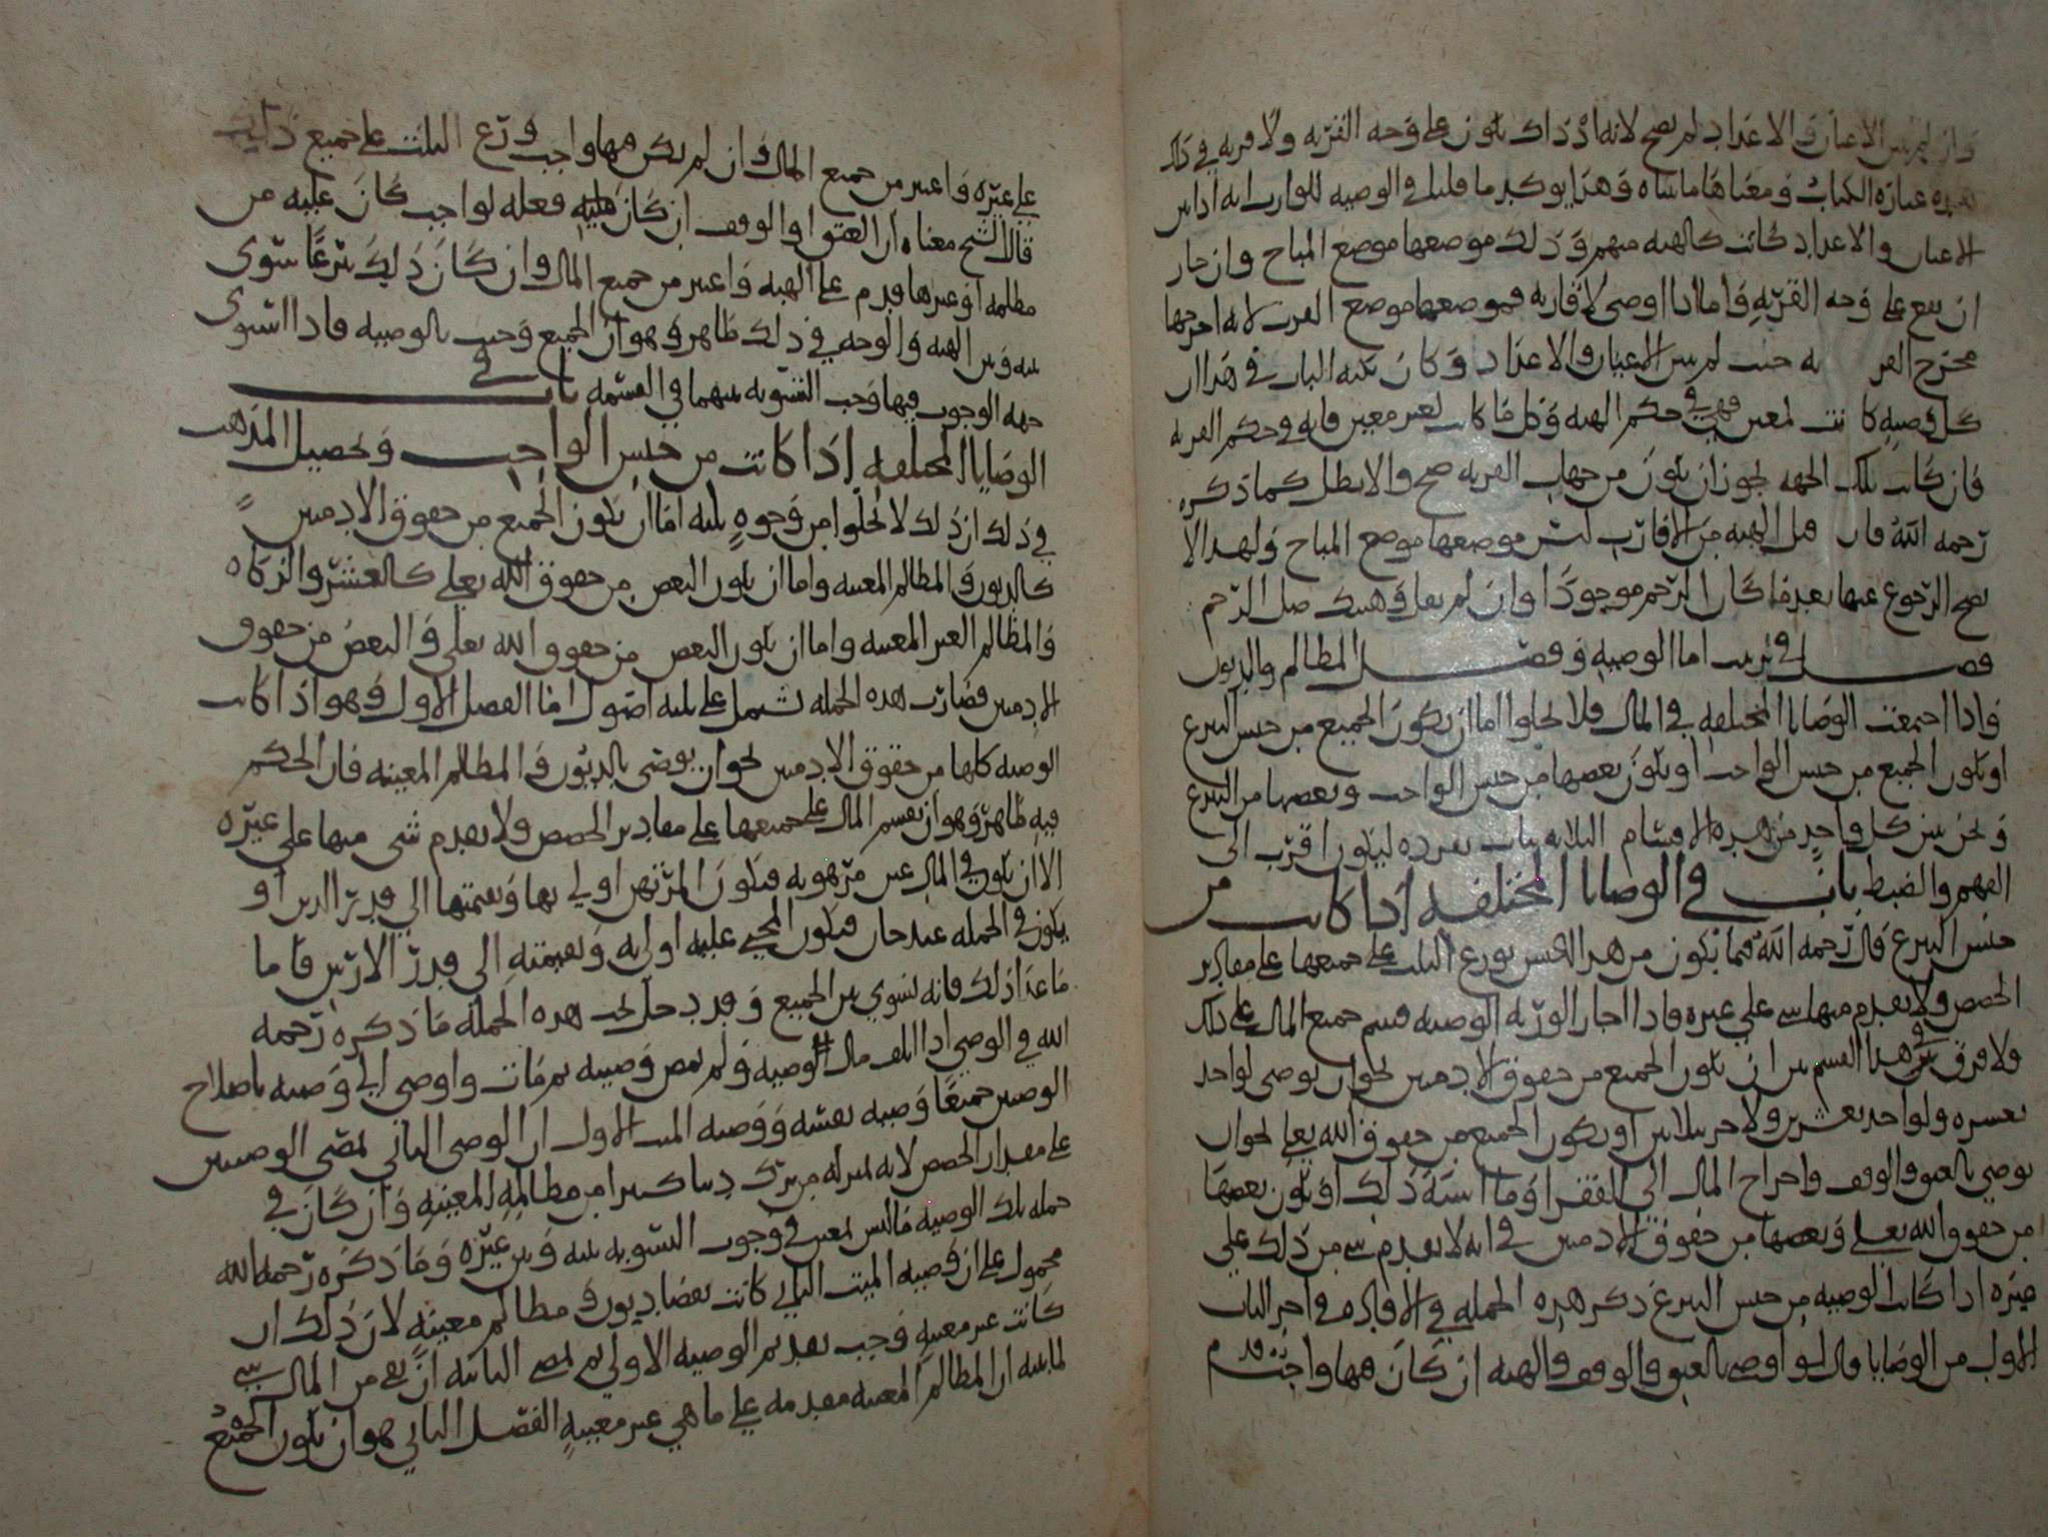 وان لم يبين الاعيان والاعداد لم يصح لانه اذ ذاك يكون على وجه القربه ولا قربه في ذلك
هذه عبارة الكتاب ومعناها ما بيناه وهذا يوكد ما قلنا في الوصيه للوارث انه اذا بين
الاعيان والاعداد كانت كالهبه منهم وذلك موضعها موضع المباح وان جاز
ان يقع على وجه القربه واما اذا اوصى لاقاربه فموضعها موضع القرب لانه اخرجها
مخرج القربه حيث لم يبين الاعيان والاعداد وكان نكتة الباب في هذا ان
كل وصيه كانت لمعين فهي في حكم الهبه وكل ما كانت لغير معين فانه في حكم القربه
فان كانت تلك الجهه يجوز ان يكون من جهات القربه صح والا بطل كما ذكره
رحمه الله فان قيل الهبه من الاقارب ليس موضعها موضع المباح ولهذا لا
يصح الرجوع عنها بعد ما كان الرحم موجودا وان لم يقل وهبتك صلة الرحم
فصل في ترتيب اما الوصيه وفصل المظالم والديون
واذا اجتمعت الوصايا المختلفه في المال فلا يخلوا اما ان يكون الجميع من جنس التبرع
او يكون الجميع من جنس الواجب او يكون بعضها من جنس الواجب وبعضها من التبرع
ونحن نبين كل واحد من هذه الاقسام الثلاثه بباب نفرده ليكون اقرب الى
الفهم والضبط باب في الوصايا المختلفه اذا كانت من
جنس التبرع قال رحمه الله فما يكون من هذا الجنس يوزع الثلث على جميعها على مقادير
الحصص ولا يقدم منها شي على غيره فاذا اجاز الورثه الوصيه قسم جميع المال على ذلك
ولا فرق في هذا القسم بين ان يكون الجميع من حقوق الادميين نحو ان يوصي لواحد
بعشره ولواحد بعشرين ولاخر بثلاثين او يكون الجميع من حقوق الله تعالى نحو ان
يوصي بالعتق والوقف واخراج المال الى الفقرا وما اشبه ذلك او يكون بعضها
من حقوق الله تعالى وبعضها من حقوق الادميين في انه لا يقدم شي من ذلك على
غيره اذا كانت الوصيه من جنس التبرع ذكر هذه الجمله في الافاده في اخر الباب
الاول من الوصايا قال لو اوصى بالعتق والوقف والهبه ان كان فيها واجب قدم
على غيره واعتبر من جميع المال وان لم يكن فيها واجب وزع الثلث على جميع ذلك
قال الشيخ معناه ان العتق او الوقف ان كان عليه فعله لواجب كان عليه من
مظلمه او غيرها قدم على الهبه واعتبر من جميع المال وان كان ذلك تبرعا سوى
بينه وبين الهبه والوجه في ذلك ظاهر وهو ان الجميع وجب بالوصيه فاذا استوى
جهه الوجوب فيها وجب التسويه بينهما في القسمه باب في
الوصايا المختلفه اذا كانت من جنس الواجب وتحصيل المذهب
في ذلك ان ذلك لا يخلوا من وجوه ثلثه اما ان يكون الجميع من حقوق الادميين
كالديون والمظالم المعينه واما ان يكون البعض من حقوق الله تعلى كالعشر والزكاه
والمظالم الغير المعينه واما ان يكون البعض من حقوق الله تعلى والبعض من حقوق
الادميين فصارت هذه الجمله تشتمل على ثلثه اصول اما الفصل الاول وهو اذا كانت
الوصيه كلها من حقوق الادميين نحو ان يوصي بالديون والمظالم المعينه فان الحكم
فيه ظاهر وهو ان يقسم المال على جميعها على مقادير الحصص ولا يقدم شي منها على غيره
الا ان يكون في المال عين مرهونه فيكون المرتهن اولى بها وبقيمتها الى قدر الدين او
يكون في الجمله عبد جان فيكون المجني عليه اولى به وبقيمته الى قدر الارش فاما
ما عدا ذلك فانه يسوي بين الجميع وقد دخل تحت هذه الجمله ما ذكره رحمه
الله في الوصي اذا اتلف مال الوصيه ولم يمض وصيه ثم مات واوصى الى وصيه باصلاح
الوصيتين جميعا وصيه نفسه ووصيه الميت الاول ان الوصي الثاني يمضي الوصيتين
على مقدار الحصص لانه بمنزله من ترك دينا كبيرا من مظالمه المعينه وان كان في
جمله تلك الوصيه ما ليس لمعين في وجوب التسويه بينه وبين غيره وما ذكره رحمه الله
محمول على ان وصيه الميت الثاني كانت بقضا ديون ومظالم معينه لان ذلك ان
كانت غير معينه وجب تقديم الوصيه الاولى ثم يمضي الثانيه ان بقي من المال شي
لما بينه ان المظالم المعينه مقدمه على ما هي غير معينه الفصل الثاني هو ان يكون الجميع